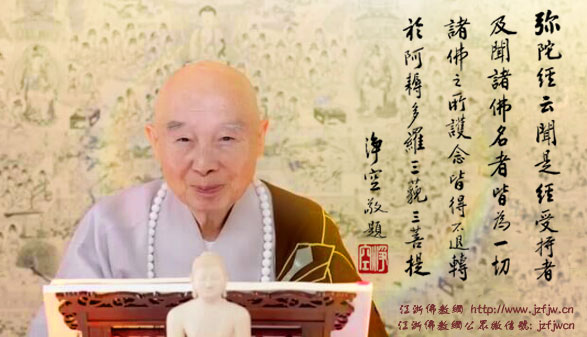 弥陀經云聞是經受持者
及聞諸佛名者皆為一切
諸佛之所護念皆得不退轉
於阿耨多羅三藐三菩提
淨空敬題
淨空
江浙佛教網 http://www.jzfjw.cn
江浙佛教網公眾微信號: jzfjwcn